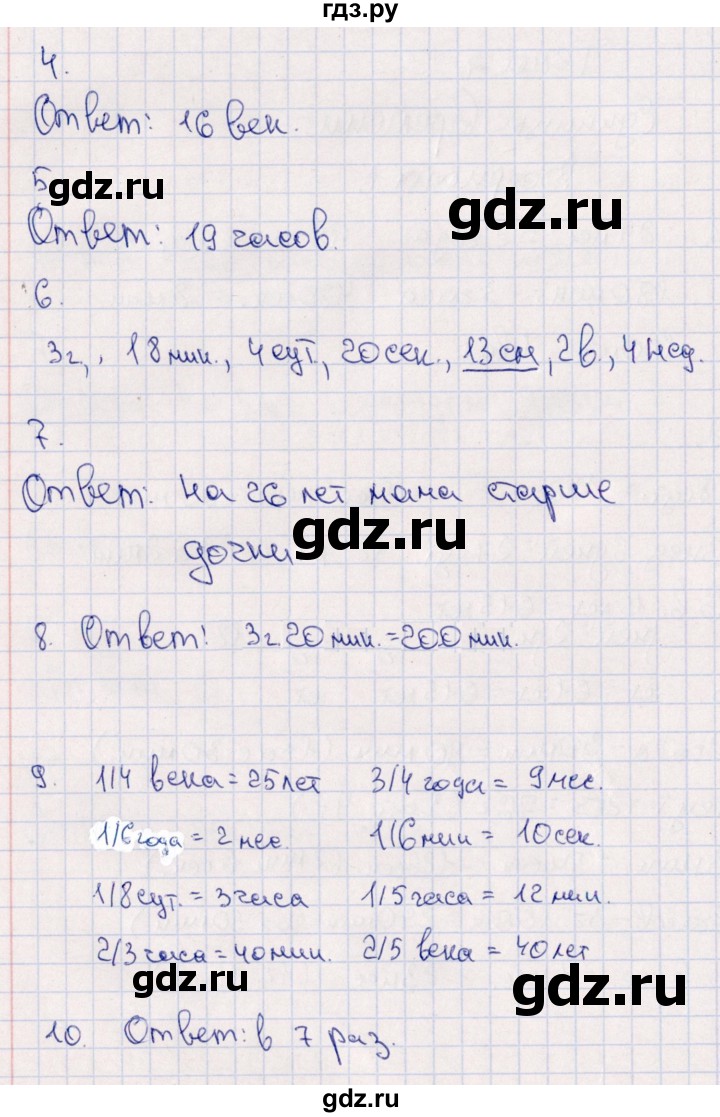 гдз.ру
4.
Ответ: 16 век.
5
gdz.ru
Ответ: 19 часов.
6.
3г., 18 мин., 4 сут, 20 сек., 13 см, 2 в., 4 нед.
7.
Ответ: на 26 лет мама старше
gdz.ru
дочки
8. Ответ: 3г 20 мин. = 200 мин.
9. 1/4 века = 25 лет 3/4 года = 9 мес.
1/6 года = 2 мес. 1/6 мин = 10 сек.
1/8 сут. = 3 часа 1/5 часа = 12 мин.
2/3 часа = 40 мин. 2/5 века = 40 лет
gdz.ru
gdz.ru
10. Ответ: в 7 раз.
gdz.ru